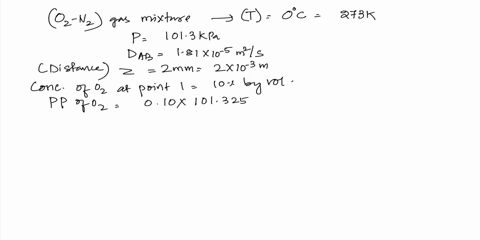 (O₂-N₂) gas mixture → (T) = 0°C = 273K
P = 101.3 kPa
D_AB = 1.81 × 10⁻⁵ m²/s
(Distance) z = 2mm = 2 × 10⁻³ m
Conc. of O₂ at point 1 = 10% by vol.
PP of O₂ = 0.10 × 101.325